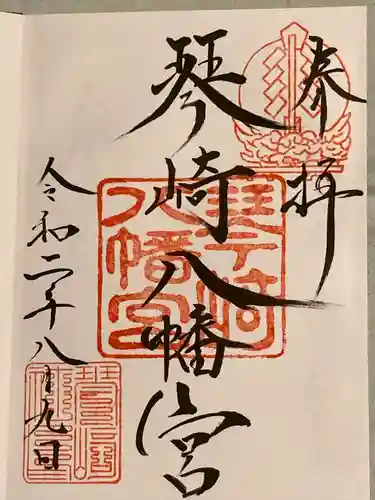 奉拝
琴崎八幡宮
令和二年八月九日
琴崎八幡宮